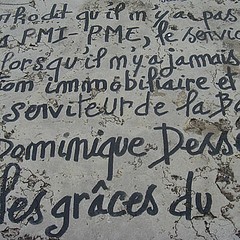 qu'il m'y a pas
a PMI-PME, le servic
lorsqu'il m'y a jamais
ion immobiliaire et
serviteur de la B
Dominique Dess
les grâces du